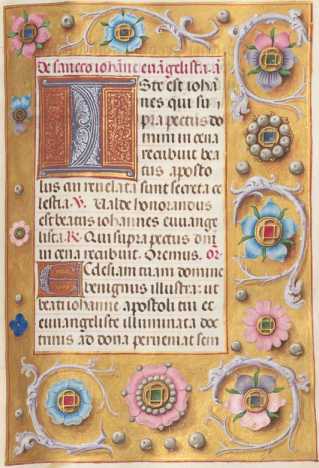 De sancto iohanne euangelista. a
Iste est ioha
nes qui su
pra pectus do
mini in cena
recubuit bea
tus aposto
lus cui reuelata sunt secreta ce
lestia. V. Valde honorandus
est beatus iohannes euuange
lista. R. Qui supra pectus dni
in cena recubuit. Oremus. or
Ecclesiam tuam domine
benignus illustra: ut
beati iohannis apostoli tui et
euuangeliste illuminata doc
trinis ad dona perueniat sem